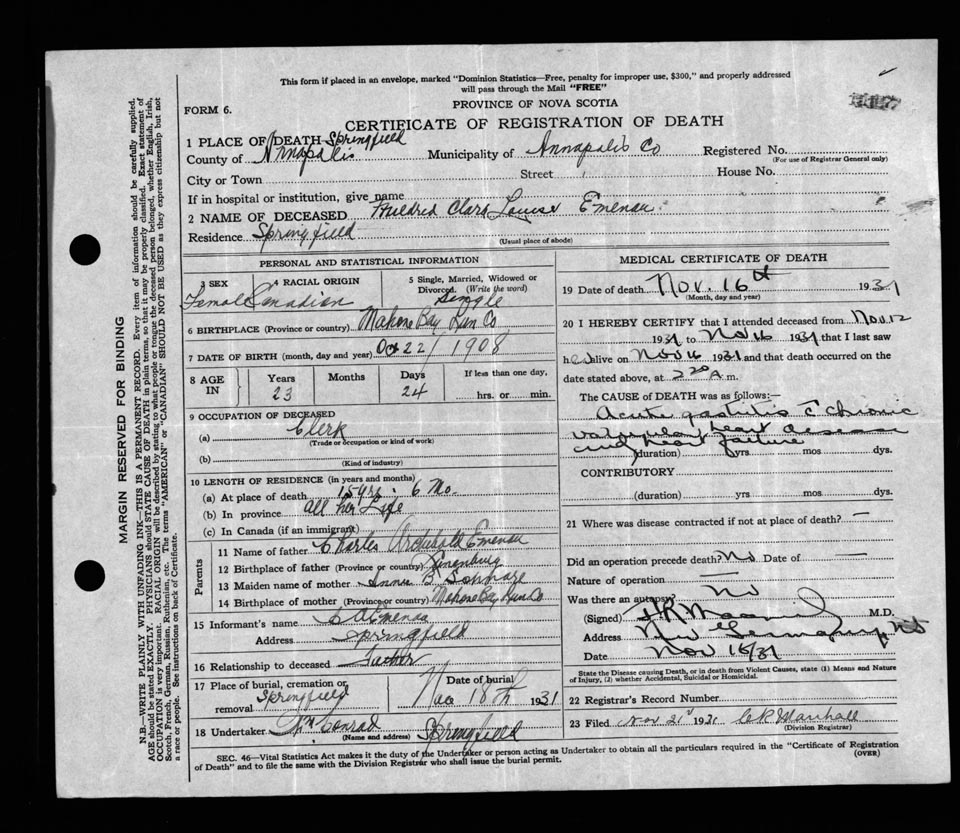 This form if placed in an envelope, marked "Dominion Statistics—Free, penalty for improper use, $300," and properly addressed
will pass through the Mail "FREE"
FORM 6.
PROVINCE OF NOVA SCOTIA
CERTIFICATE OF REGISTRATION OF DEATH
1 PLACE OF DEATH Springfield
County of Annapolis Municipality of Annapolis Co Registered No.
(For use of Registrar General only)
City or Town Street House No.
If in hospital or institution, give name
2 NAME OF DECEASED Mildred Clara Louise Emenau
Residence Springfield
(Usual place of abode)
PERSONAL AND STATISTICAL INFORMATION
3 SEX 4 RACIAL ORIGIN 5 Single, Married, Widowed or
Divorced. (Write the word)
Female Canadian Single
6 BIRTHPLACE (Province or country) Mahone Bay Lun Co
7 DATE OF BIRTH (month, day and year) Oct 22/ 1908
8 AGE IN Years Months Days If less than one day,
23 24 hrs. or min.
9 OCCUPATION OF DECEASED
(a) Clerk
(Trade or occupation or kind of work)
(b)
(Kind of industry)
10 LENGTH OF RESIDENCE (in years and months)
(a) At place of death 15 yrs. 6 Mo.
(b) In province all her Life
(c) In Canada (if an immigrant)
Parents
11 Name of father Charles Archibald Emenau
12 Birthplace of father (Province or country) Lunenburg
13 Maiden name of mother Annie B
14 Birthplace of mother (Province or country) Mahone Bay Lun Co
15 Informant's name Emenau
Address Springfield
16 Relationship to deceased Father
17 Place of burial, cremation or removal Springfield Date of burial Nov 18th 1931
18 Undertaker Wm Conrad Springfield
(Name and address)
MEDICAL CERTIFICATE OF DEATH
19 Date of death Nov. 16th 1931
(Month, day and year)
20 I HEREBY CERTIFY that I attended deceased from Nov 12
1931 to Nov 16 1931 that I last saw
her alive on Nov 16 1931 and that death occurred on the
date stated above, at 2 20 A m.
The CAUSE OF DEATH was as follows:—
Acute gastritis c chronic
valvular heart disease
and heart failure
(duration) yrs. mos dys.
CONTRIBUTORY
(duration) yrs mos dys.
21 Where was disease contracted if not at place of death? —
Did an operation precede death? No Date of —
Nature of operation —
Was there an autopsy? No
(Signed) M.D.
Address New Germany, NS
Date Nov 16/31
State the Disease causing Death, or in death from Violent Causes, state (1) Means and Nature
of Injury, (2) whether Accidental, Suicidal or Homicidal.
22 Registrar's Record Number
23 Filed Nov 21st 1931 C R Marshall
(Division Registrar)
SEC. 46—Vital Statistics Act makes it the duty of the Undertaker or person acting as Undertaker to obtain all the particulars required in the "Certificate of Registration
of Death" and to file the same with the Division Registrar who shall issue the burial permit. (OVER)
MARGIN RESERVED FOR BINDING
N.B.—WRITE PLAINLY WITH UNFADING INK—THIS IS A PERMANENT RECORD. Every item of information should be carefully supplied.
AGE should be stated EXACTLY. PHYSICIANS should STATE CAUSE OF DEATH in plain terms, so that it may be properly classified. Exact statement of
OCCUPATION is very important. RACIAL ORIGIN will be described by stating to what people or tongue the deceased person belonged, whether English, Irish,
Scotch, French, German, Russian, Ruthenian, etc. The terms "AMERICAN" or "CANADIAN" SHOULD NOT BE USED as they express citizenship but not
a race or people. See instructions on back of Certificate.